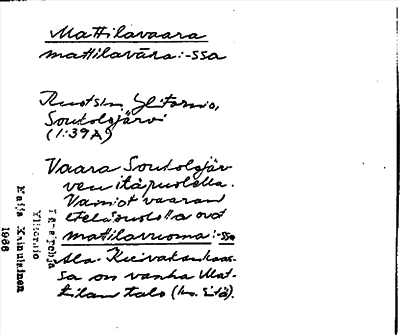 Mattilavaara
mattilavāra:-ssa
Ruotsin Ylitornio,
Soukolojärvi
(1:39A)
Vaara Soukolojär-
ven itäpuolella.
Vaaran
eteläpuolella ovat
mattilavuoma:-ssa
Ala
sa on vanha Mat-
tilan talo (ks. sitä).
Peräpohja
Ylitornio
Maija Kainulainen
1966